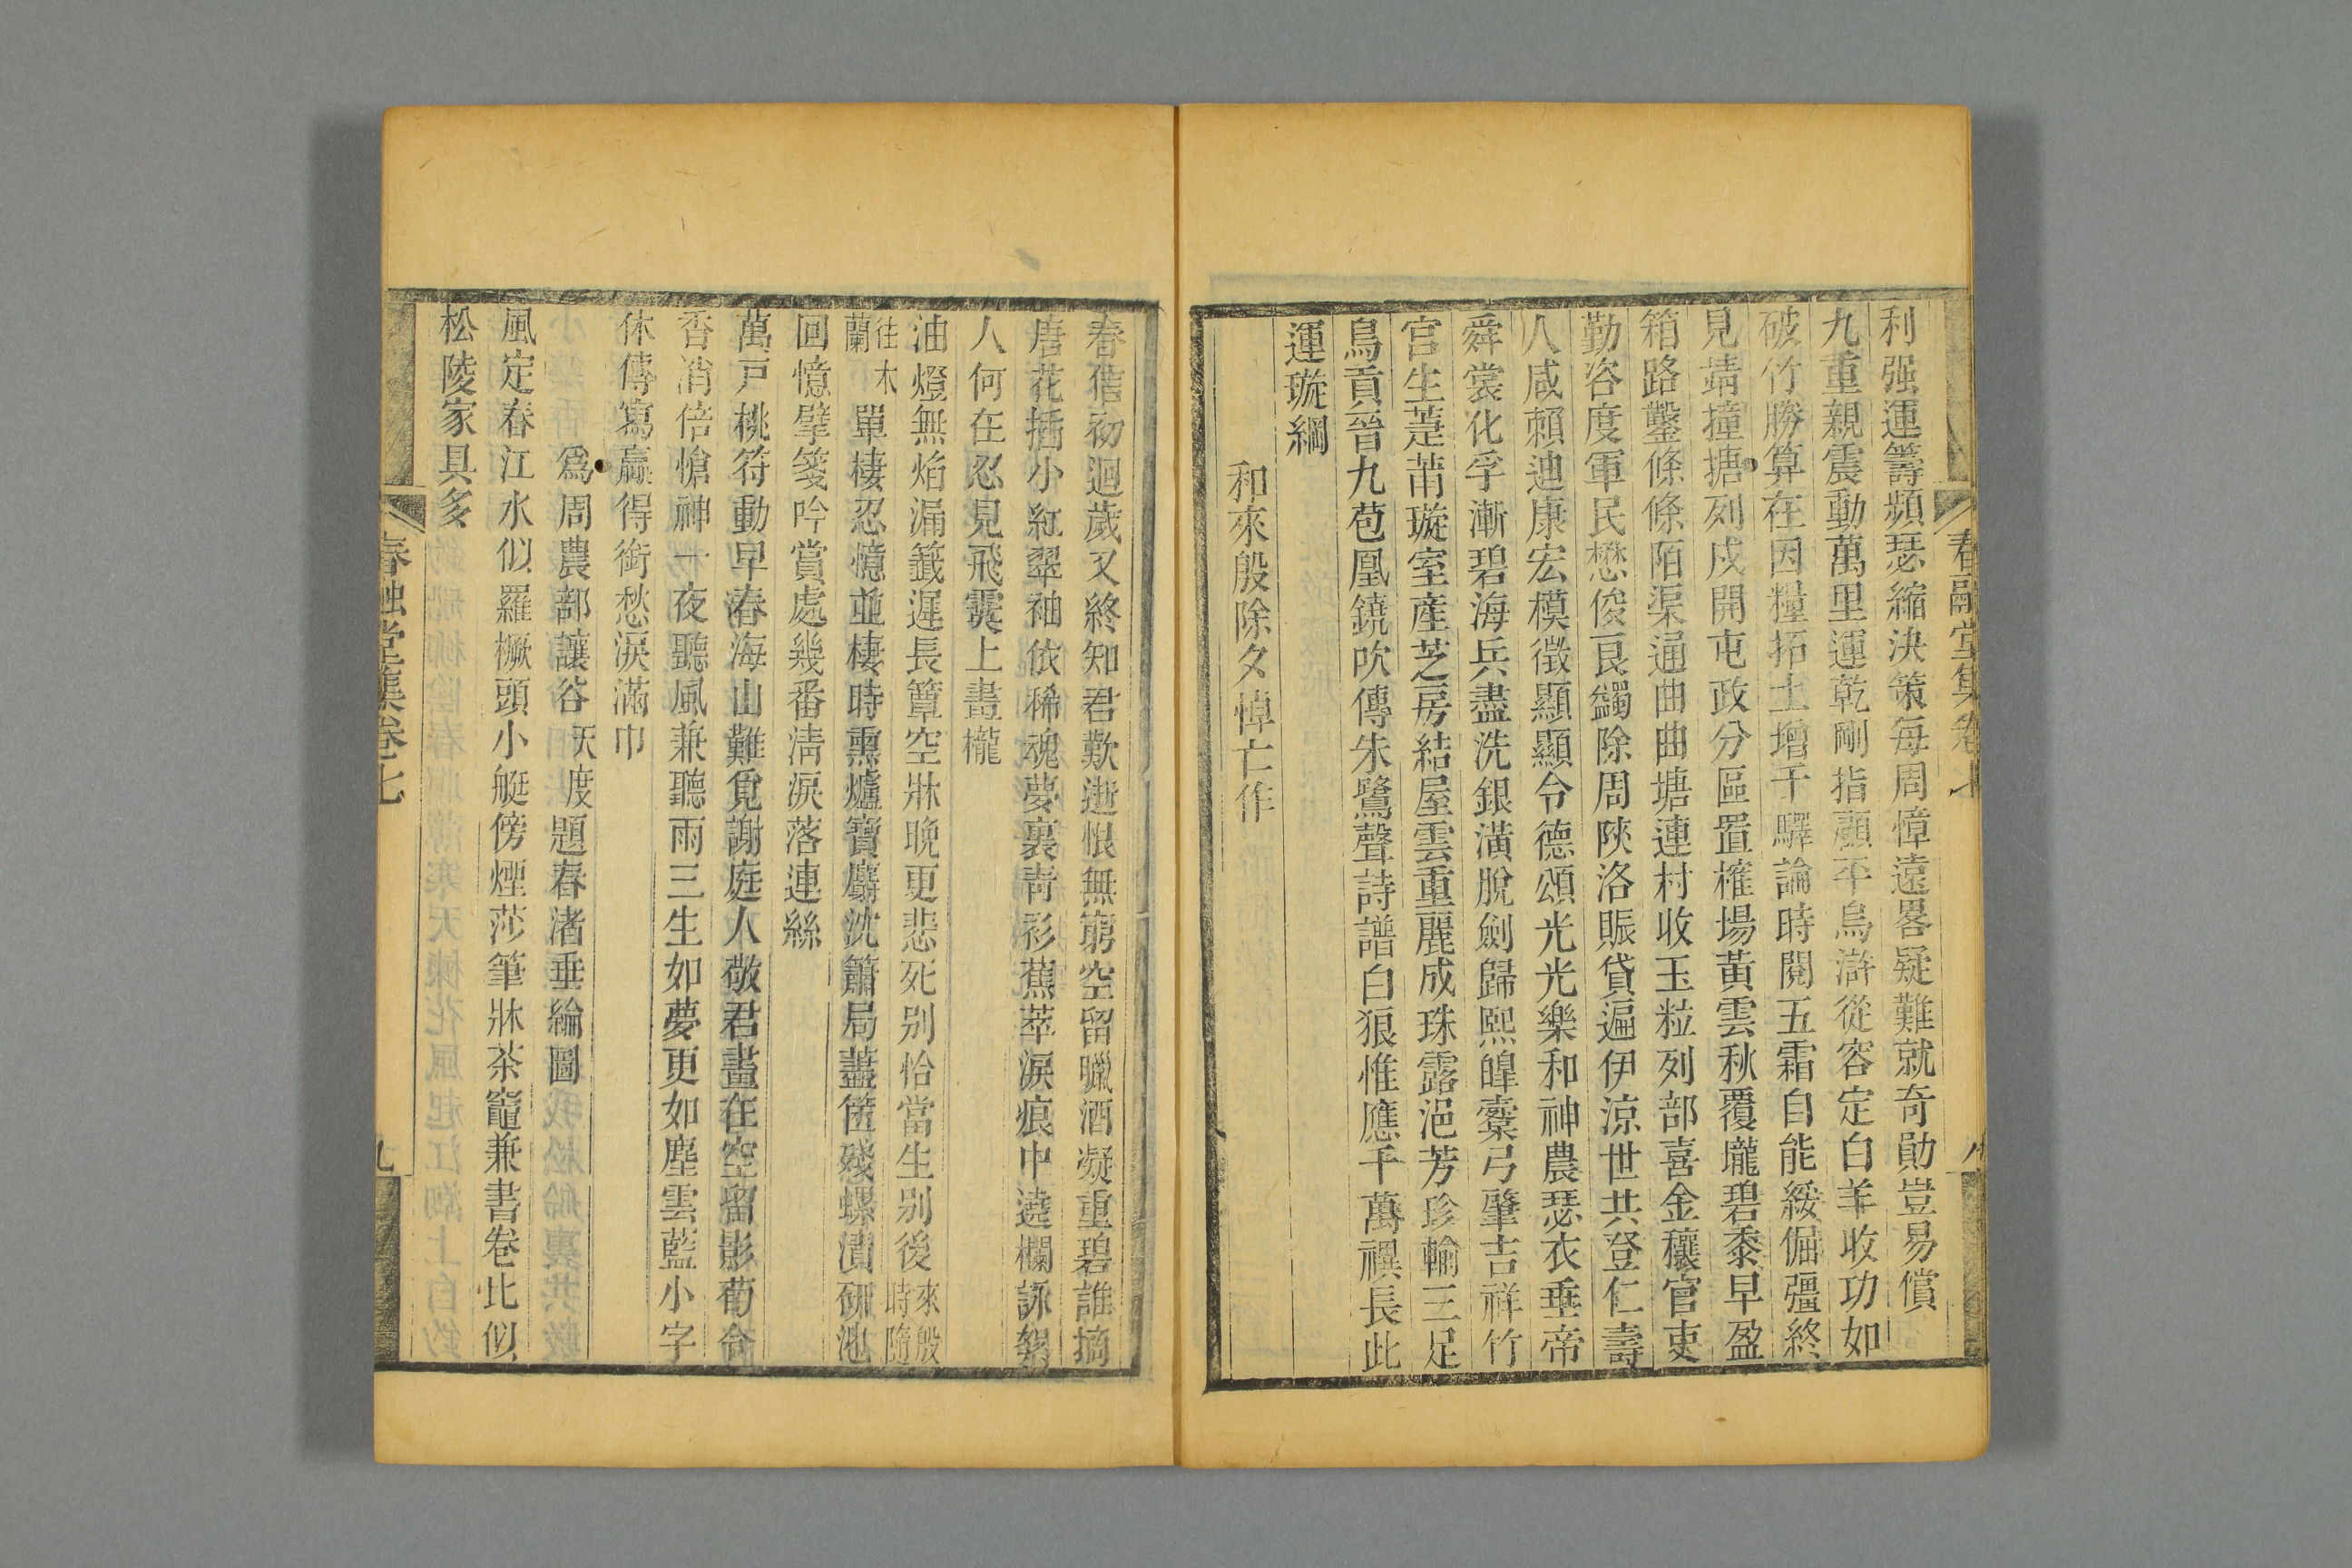 利强運籌頻瑟縮決策每周慞遠畧疑難就奇勛豈易償
九重親震動萬里運乾剛指顧平烏滸從容定白羊收功如
破竹勝算在因糧拓土增千驛論時閱五霜自能綏倔彊終
見靖撞搪列戍開屯政分區置榷場黃雲秋覆壠碧黍早盈
箱路鑿條條陌渠通曲曲塘連村收玉粒列部喜金穰官吏
勤咨度軍民懋俊良蠲除周陝洛賑貸遍伊涼世共登仁壽
人咸賴迪康宏模徵顯顯令德頌光光樂和神農瑟衣垂帝
舜裳化孚漸碧海兵盡洗銀潢脫劍歸熙皞櫜弓肇吉祥竹
宮生萐莆璇室產芝房結屋雲重麗成珠露浥芳珍輸三足
烏貢晉九苞凰鐃吹傳朱鷺聲詩譜白狼惟應千萬禩長此
運璇綱
和來殷除夕悼亡作
春催初迴歲又終知君歎逝恨無窮空留臘酒凝重碧誰摘
唐花插小紅翠袖依稀魂夢裏青衫蕉萃淚痕中遶欄詠絮
人何在忍見飛霙上畫櫳
油燈無焰漏籤遲長簟空牀晚更悲死別恰當生別後來殷時隨
往木蘭單棲忍憶並棲時熏爐寶麝沈簫局藎篋殘螺漬硏池
回憶擘箋吟賞處幾番淸淚落連絲
萬戸桃符動早春海山難覓謝庭人敬君畫在空留影荀令
香消倍愴神一夜聽風兼聽雨三生如夢更如塵雲藍小字
休傳寫贏得銜愁淚滿巾
爲周農部讓谷天度題春渚垂綸圖
風定春江水似羅橛頭小艇傍煙莎筆牀茶竈兼書卷比似
松陵家具多
春融堂集卷七
九